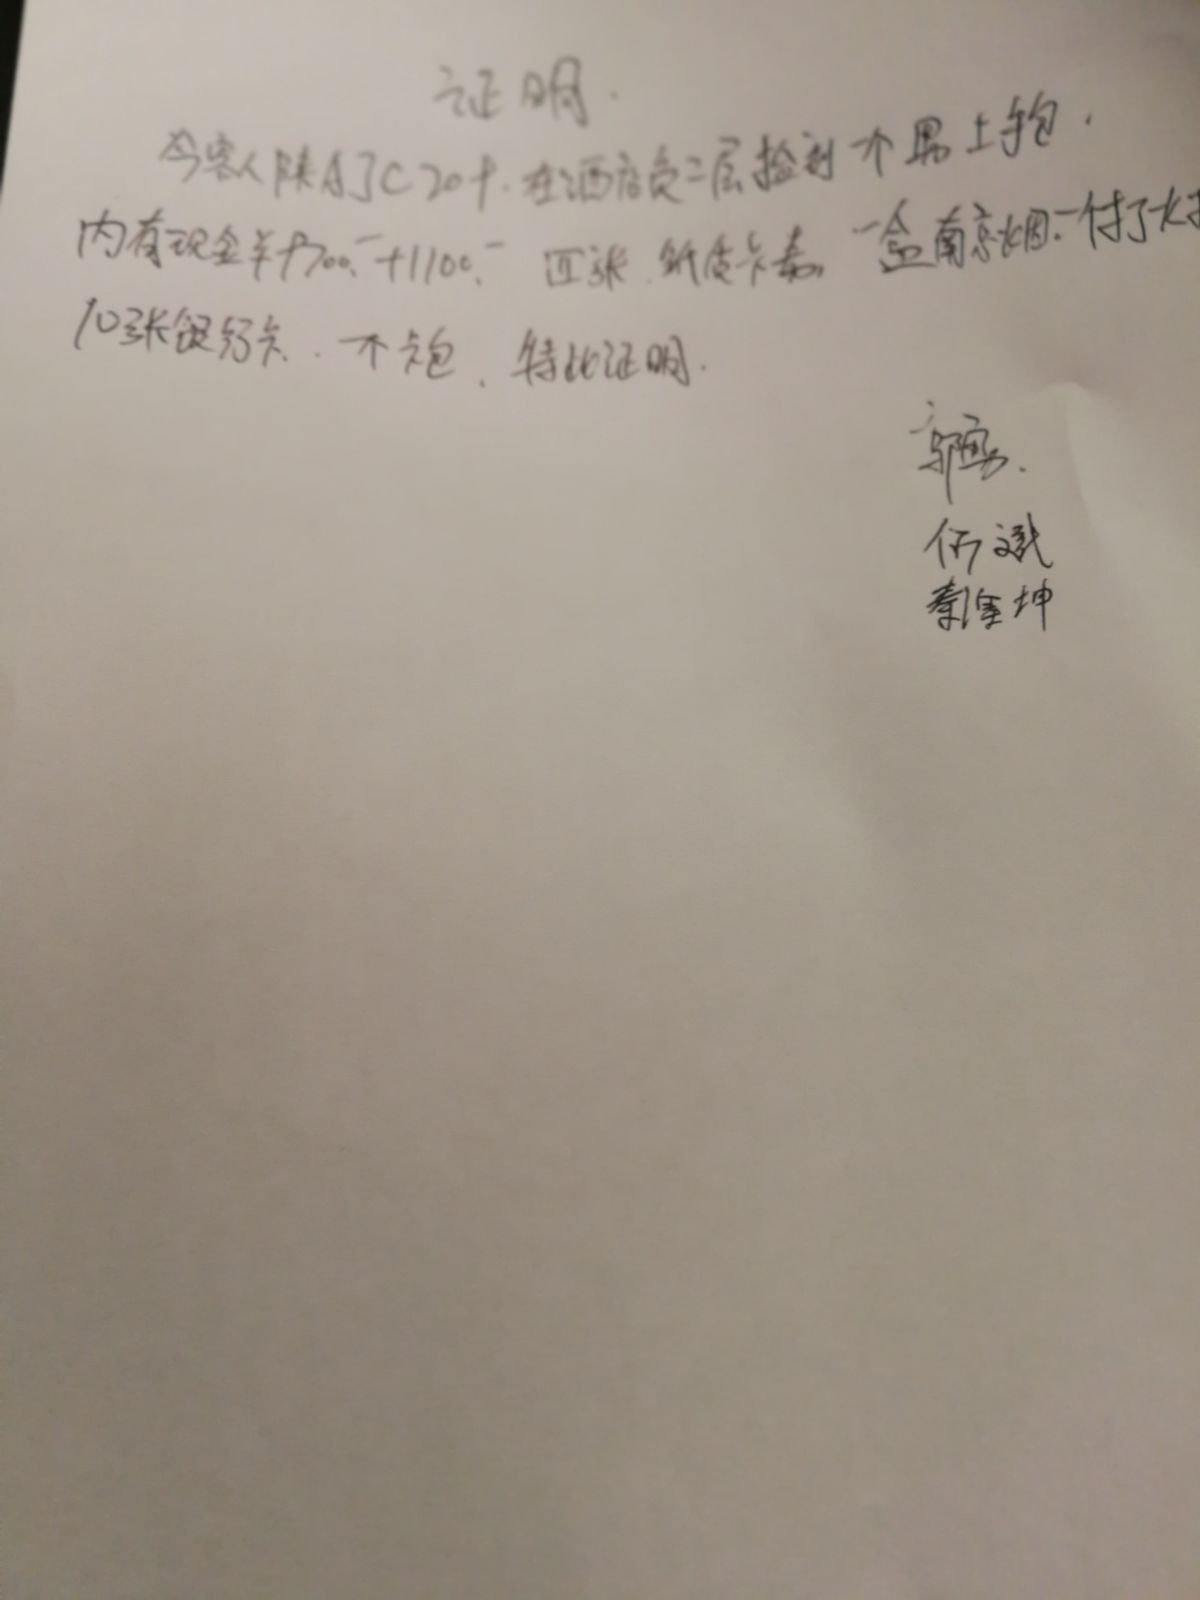 证明.
今客人陕AJC20十.在酒店负二层捡到个男士手包.
内有现金羊 700.-+1100.- 四张.纸质卡 一盒南京烟.一付
10张银行卡.个卡包、特此证明.
何斌
坤